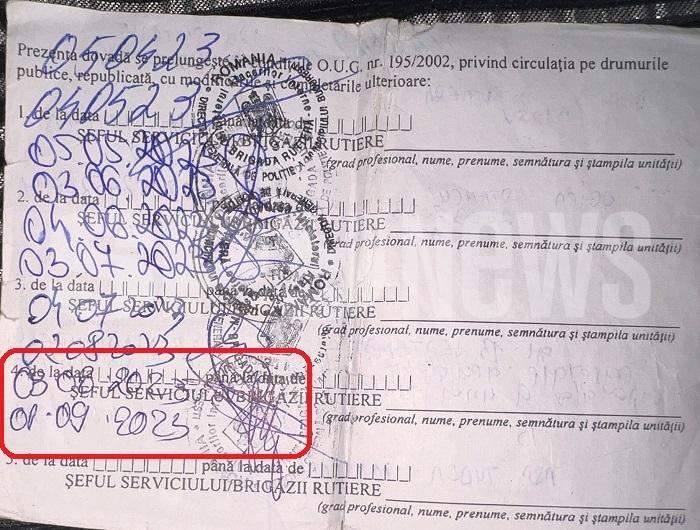 05.04.23
Prezenta dovadă se prelungește în condițiile O.U.G. nr. 195/2002, privind circulația pe drumurile
publice, republicată, cu modificările și completările ulterioare:
04.05.23
1. de la data până la data de
ȘEFUL SERVICIULUI/BRIGĂZII RUTIERE
05.05.2023
(grad profesional, nume, prenume, semnătura și ștampila unității)
03.06.2023
2. de la data până la data de
04.06.2023
ȘEFUL SERVICIULUI/BRIGĂZII RUTIERE
(grad profesional, nume, prenume, semnătura și ștampila unității)
03.07.2023
3. de la data până la data de
04.07.2023
ȘEFUL SERVICIULUI/BRIGĂZII RUTIERE
(grad profesional, nume, prenume, semnătura și ștampila unității)
02.08.2023
4. de la data până la data de
03.08.2023
ȘEFUL SERVICIULUI/BRIGĂZII RUTIERE
01.09.2023
(grad profesional, nume, prenume, semnătura și ștampila unității)
5. de la data până la data de
ȘEFUL SERVICIULUI/BRIGĂZII RUTIERE
(grad profesional, nume, prenume, semnătura și ștampila unității)
ROMANIA
BRIGADA RUTIERĂ
NEWS